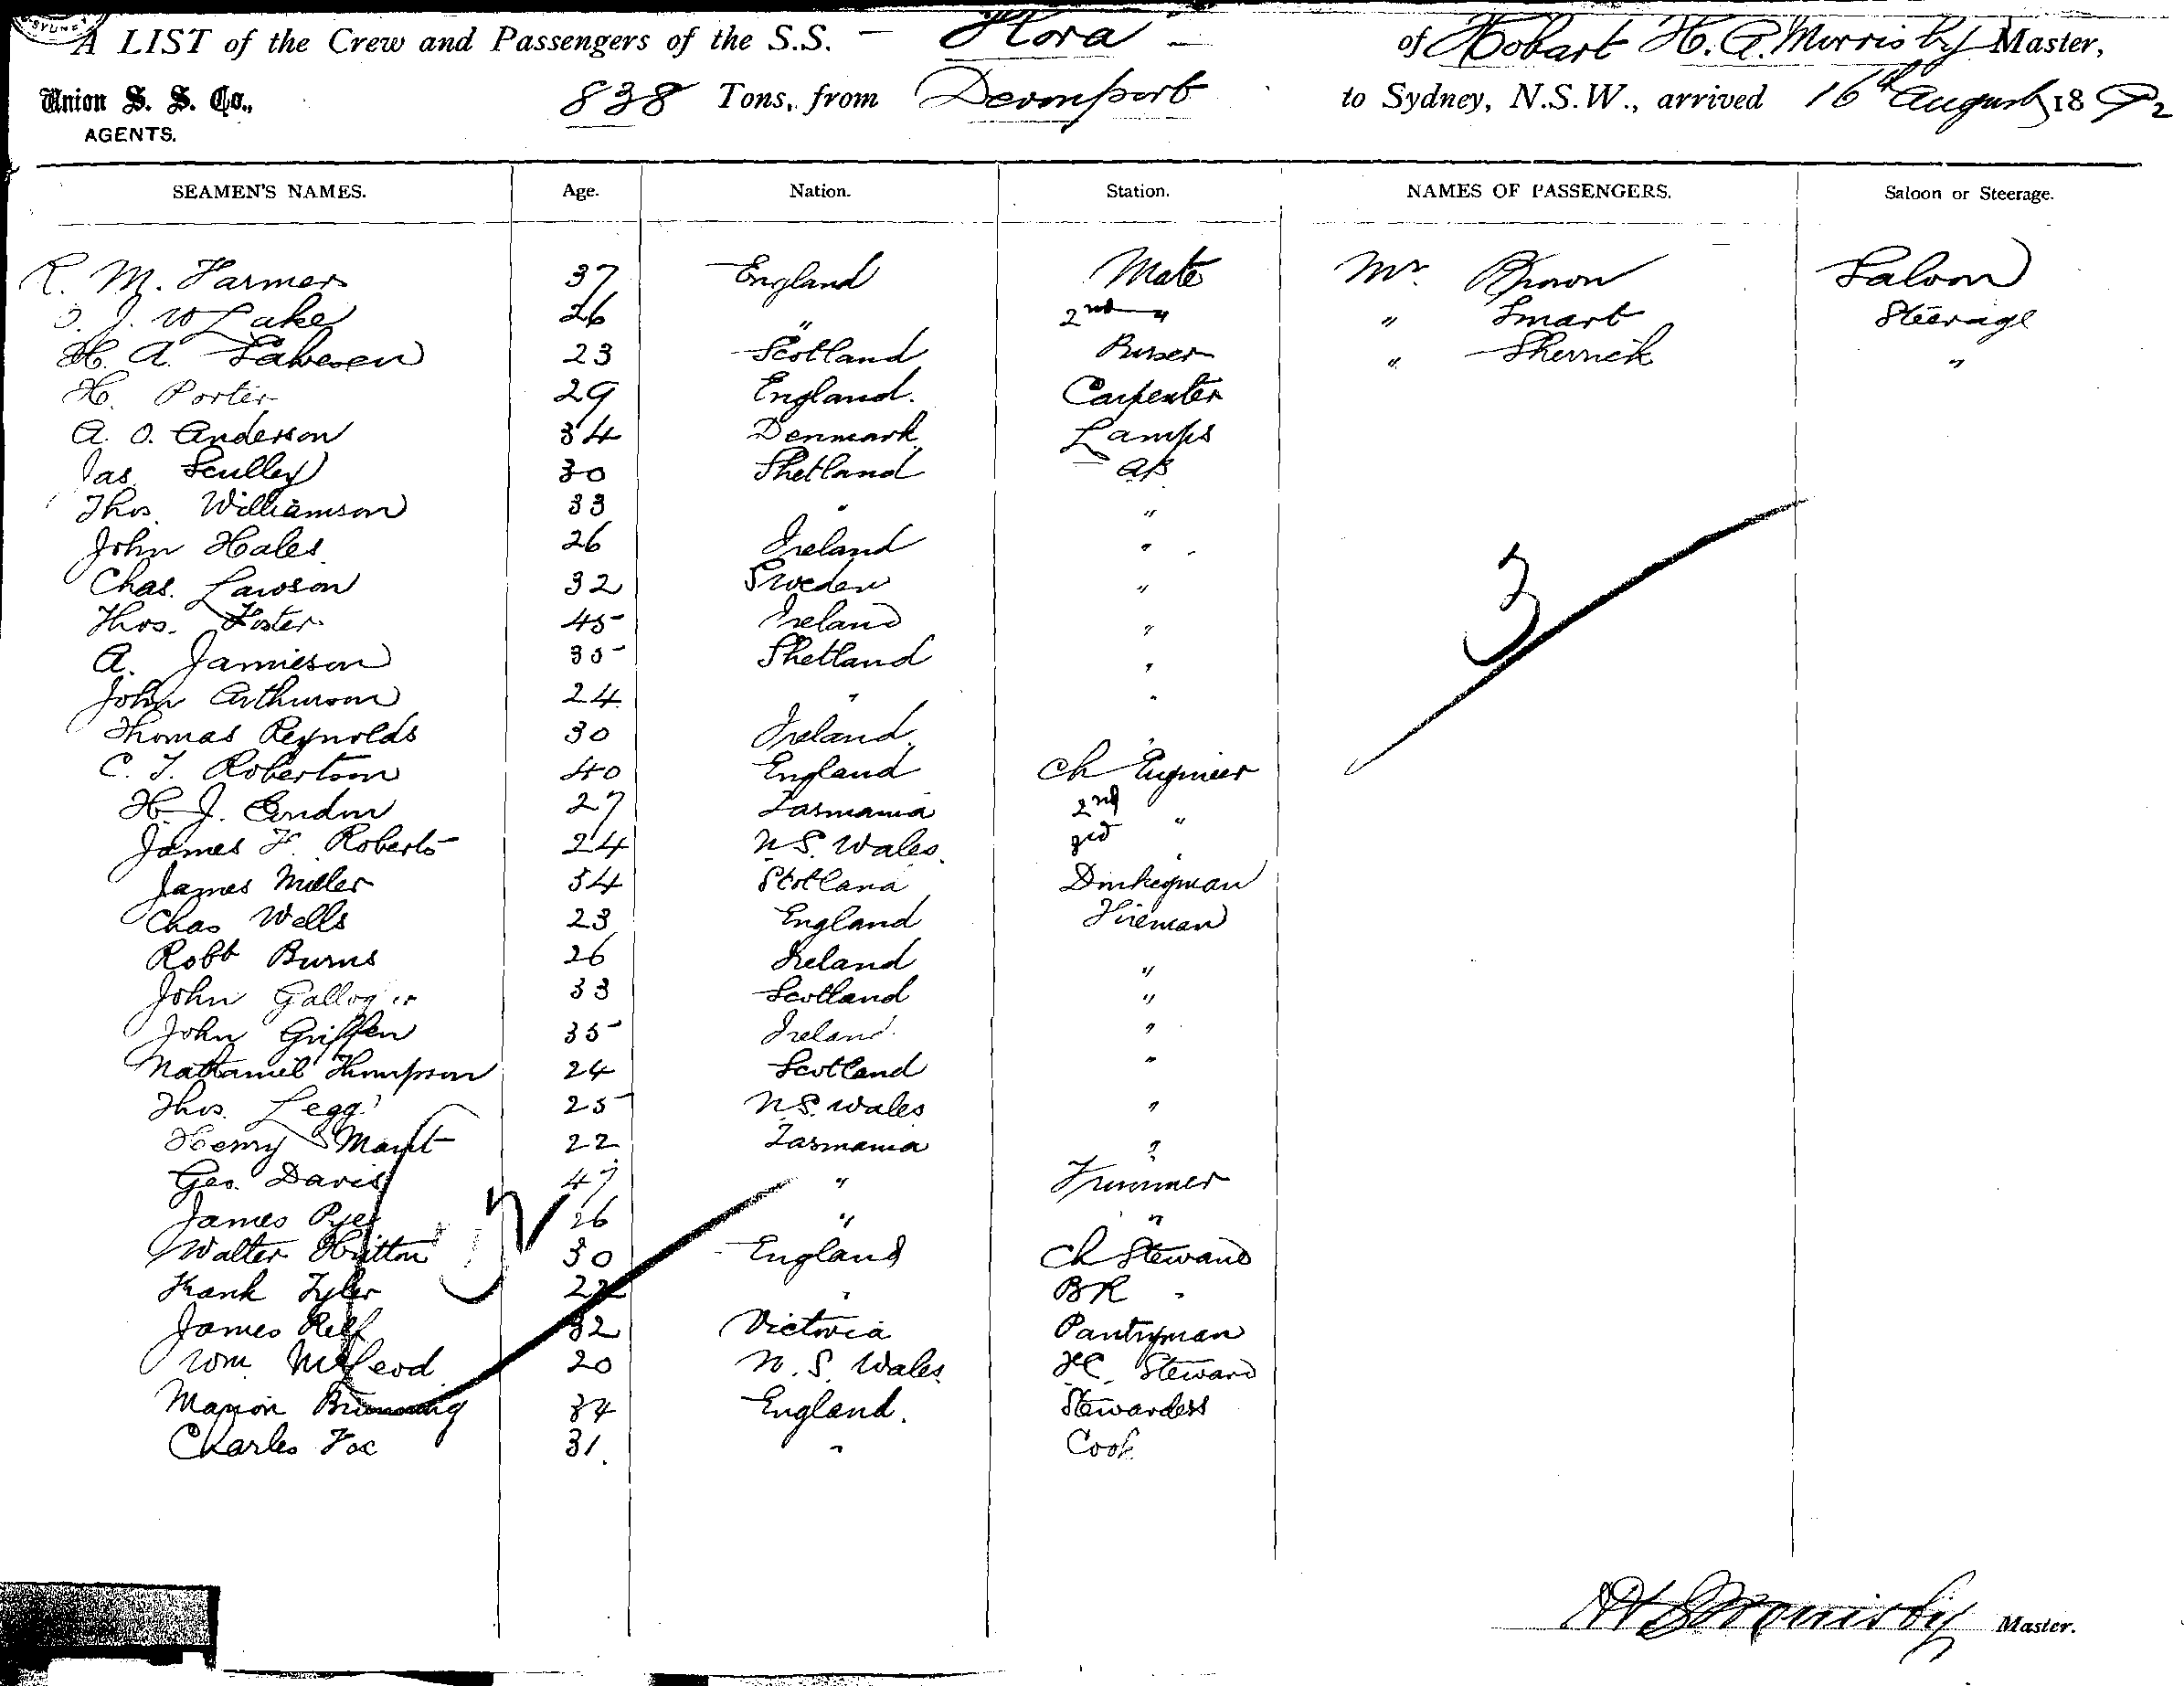 A LIST of the Crew and Passengers of the S.S. — Flora — of Hobart H. A. Morrisby Master,
Union S. S. Co., 838 Tons, from Devonport to Sydney, N.S.W., arrived 16th August 1892
AGENTS.
SEAMEN'S NAMES. Age. Nation. Station. NAMES OF PASSENGERS. Saloon or Steerage.
R. M. Farmer 37 England Mate Mr. Saloon
J. W Lake 26 " 2nd " " Smart Steerage
H. A. 23 Scotland Purser " Sherrick "
H. Porter 29 England. Carpenter
A. O. Anderson 34 Denmark Lamps
Jas. Sculley 30 Shetland AB
Thos. Williamson 33 " "
John Hales 26 Ireland "
Chas. Lawson 32 Sweden "
Thos. Foster 45 Ireland "
A. Jamieson 35 Shetland "
John Arthurson 24 " "
Thomas Reynolds 30 Ireland "
C. T. Robertson 40 England Ch Engineer
H. J. Condon 27 Tasmania 2nd "
James F. Roberts 24 N.S. Wales 3rd "
James Miller 54 Scotland Donkeyman
Chas Wells 23 England Fireman
Robt Burns 26 Ireland "
John 33 Scotland "
John Griffen 35 Ireland "
Nathaniel Thompson 24 Scotland "
Thos. Legg 25 N.S. Wales "
Henry Mant 22 Tasmania "
Geo. Davis 47 " Trimmer
James Pye 26 " "
Walter Hutton 30 England Ch Steward
Frank Tyler 22 " BR "
James Relf 32 Victoria Pantryman
Wm. McLeod 20 N. S. Wales FC Steward
Marion 34 England. Stewardess
Charles Fox 31 " Cook
3
32
H A Morrisby Master.